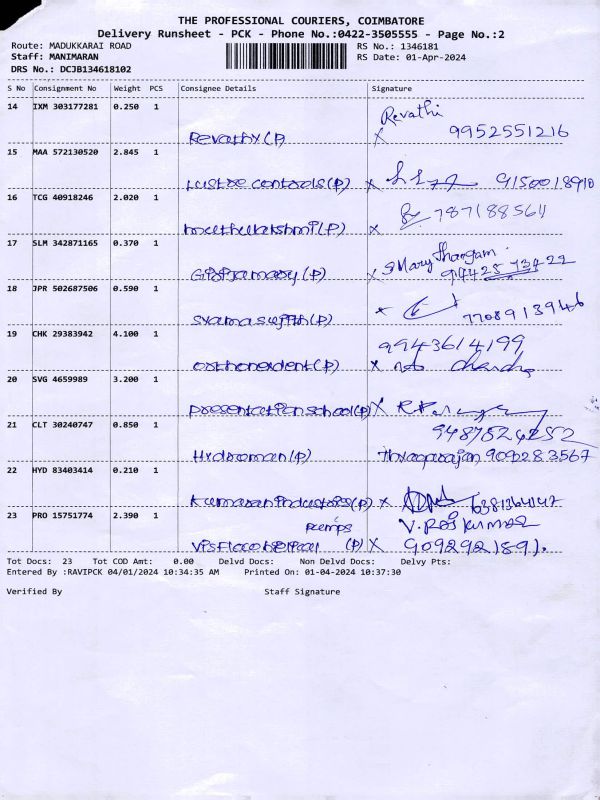 THE PROFESSIONAL COURIERS, COIMBATORE
Delivery Runsheet - PCK - Phone No.:0422-3505555 - Page No.:2
Route: MADUKKARAI ROAD
Staff: MANIMARAN
DRS No.: DCJB134618102
RS No.: 1346181
RS Date: 01-Apr-2024
S No Consignment No Weight PCS Consignee Details Signature
14 IXM 303177281 0.250 1
Revathi
Revathy(P) x 9952551216
15 MAA 572130520 2.845 1
(P) x 9150018910
16 TCG 40918246 2.020 1
7871885611
muthulakshmi(P) x
17 SLM 342871165 0.370 1
Mary Thangam
(P) x 9442573422
18 JPR 502687506 0.590 1
x 7708913946
(P)
19 CHK 29383942 4.100 1
9943614199
(P) x
20 SVG 4659989 3.200 1
presentation school(P) x
21 CLT 30240747 0.850 1
9487524252
(P) Thiyagarajan 9092283567
22 HYD 83403414 0.210 1
Kumaran industries(P) x 6381364147
23 PRO 15751774 2.390 1
pumps V.Rajkumar
(P) x 9092921891).
Tot Docs: 23 Tot COD Amt: 0.00 Delvd Docs: Non Delvd Docs: Delvy Pts:
Entered By :RAVIPCK 04/01/2024 10:34:35 AM Printed On: 01-04-2024 10:37:30
Verified By Staff Signature